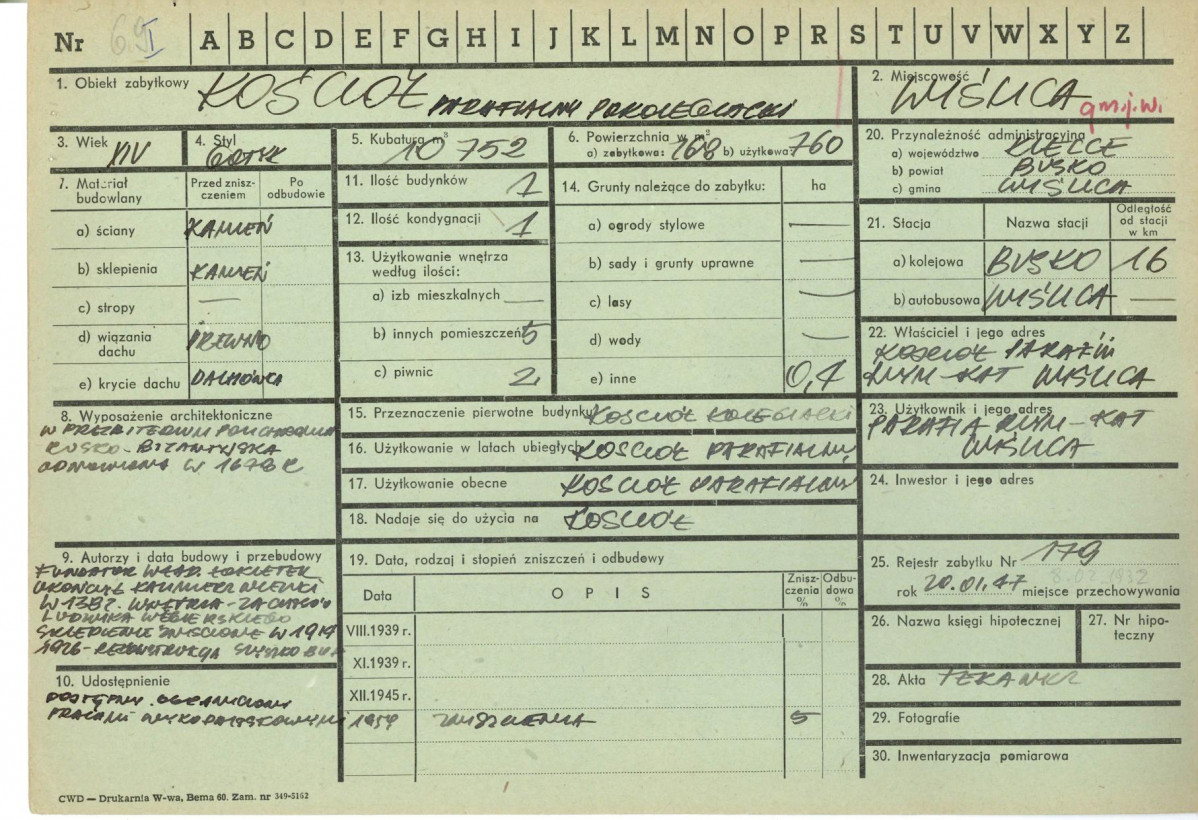 Nr 69I A B C D E F G H I J K L M N O P R S T U V W X Y Z
1. Obiekt zabytkowy KOŚCIÓŁ PARAFIALNY POKOLEGIACKI
2. Miejscowość WIŚLICA gm.j.w.
3. Wiek XIV
4. Styl GOTYK
5. Kubatura m³ 10 752
6. Powierzchnia w m²
a) zabytkowa: 768 b) użytkowa 760
20. Przynależność administracyjna
a) województwo KIELCE
b) powiat BUSKO
c) gmina WIŚLICA
7. Materiał budowlany
Przed zniszczeniem
Po odbudowie
a) ściany KAMIEŃ
b) sklepienia KAMIEŃ
c) stropy —
d) wiązania dachu DREWNO
e) krycie dachu DACHÓWKA
11. Ilość budynków 1
12. Ilość kondygnacji 1
13. Użytkowanie wnętrza
według ilości:
a) izb mieszkalnych —
b) innych pomieszczeń 5
c) piwnic 2
14. Grunty należące do zabytku: ha
a) ogrody stylowe —
b) sady i grunty uprawne —
c) lasy —
d) wody —
e) inne 0,7
21. Stacja Nazwa stacji Odległość od stacji w km
a) kolejowa BUSKO 16
b) autobusowa WIŚLICA —
22. Właściciel i jego adres
KOŚCIÓŁ PARAFII
RZYM-KAT WIŚLICA
8. Wyposażenie architektoniczne
W PREZBITERIUM POLICHROMIA
RUSKO-BIZANTYJSKA
ODNOWIONA W 1678 R
15. Przeznaczenie pierwotne budynku KOŚCIÓŁ KOLEGIACKI
16. Użytkowanie w latach ubiegłych KOŚCIÓŁ PARAFIALNY
17. Użytkowanie obecne KOŚCIÓŁ PARAFIALNY
18. Nadaje się do użycia na KOŚCIÓŁ
23. Użytkownik i jego adres
PARAFIA RZYM-KAT
WIŚLICA
24. Inwestor i jego adres
9. Autorzy i data budowy i przebudowy
FUNDATOR WŁAD. ŁOKIETEK
UKOŃCZYŁ KAZIMIERZ WIELKI
W 1382.
LUDWIKA WĘGIERSKIEGO
SKLEPIENIE ZNISZCZONE W 1914
1926-REKONSTRUKCJA
19. Data, rodzaj i stopień zniszczeń i odbudowy
Data OPIS Zniszczenia % Odbudowa %
VIII.1939 r.
XI.1939 r.
XII.1945 r.
1959 ZNISZCZENIA 5
25. Rejestr zabytku Nr 179
8.02.1932
rok 20.01.47 miejsce przechowywania
26. Nazwa księgi hipotecznej
27. Nr hipoteczny
10. Udostępnienie
DOSTĘPNY. OGRANICZONY
PRACAMI WYKOPALISKOWYMI
28. Akta
29. Fotografie
30. Inwentaryzacja pomiarowa
CWD — Drukarnia W-wa, Bema 60. Zam. nr 349-5162